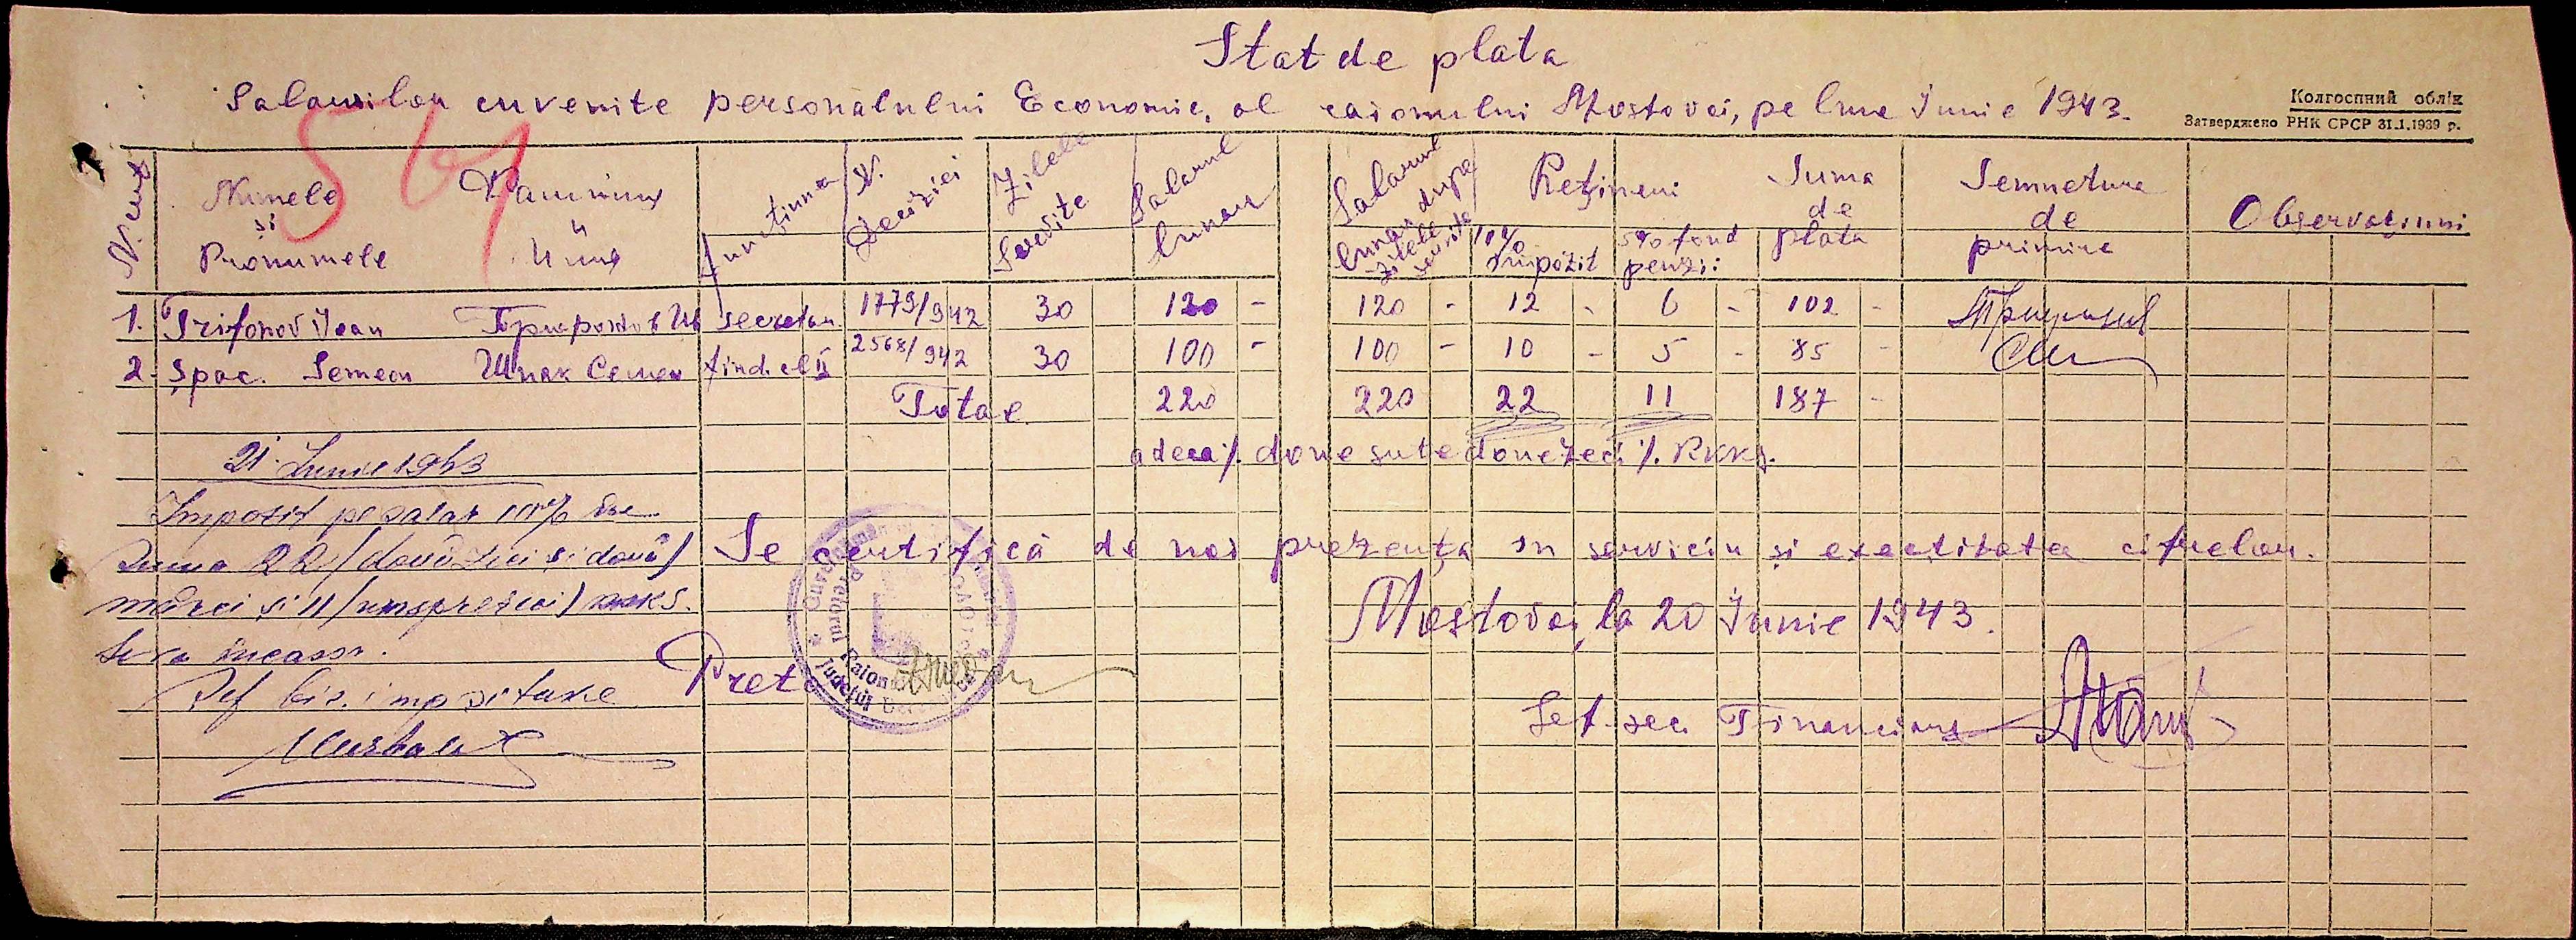 Stat de plata
Salariilor cuvenite personalului Economic, al raionului Mostovoi, pe luna Junie 1943.
Колгоспний облік
Затверджено РНК СРСР 31.1.1939 р.
561
N. Nume și Pronumele
Functiunea
N. Deciziei
Zilele Servite
Salarul lunar
Salarul lunar dupa zilele servite
Rețineri
10% impozit
5% fond penzii
Suma de plata
Semnetura de primire
Observațiuni
1. Trifonov Ivan secretar 1779/942 30 120 - 120 - 12 - 6 - 102 -
2. Șpac. Semeon Шпак Семен find. cl II 2568/942 30 100 - 100 - 10 - 5 - 85 -
Total 220 220 22 11 187 -
adeca /. doue sute douezeci /. RKKS.
21 Junie 1943
Impozit pe salar 10% în
suma 22 /două zeci și două/
mărci și 11 /unsprezeci/ RKKS.
Se va încasa.
Șef bir. impozitare
Se certifică de noi prezența in serviciu și exactitatea cifrelor.
Mostovoi, la 20 Junie 1943.
Pretor
Pretorul Raion
Judetul
Șef. sec. Financiara